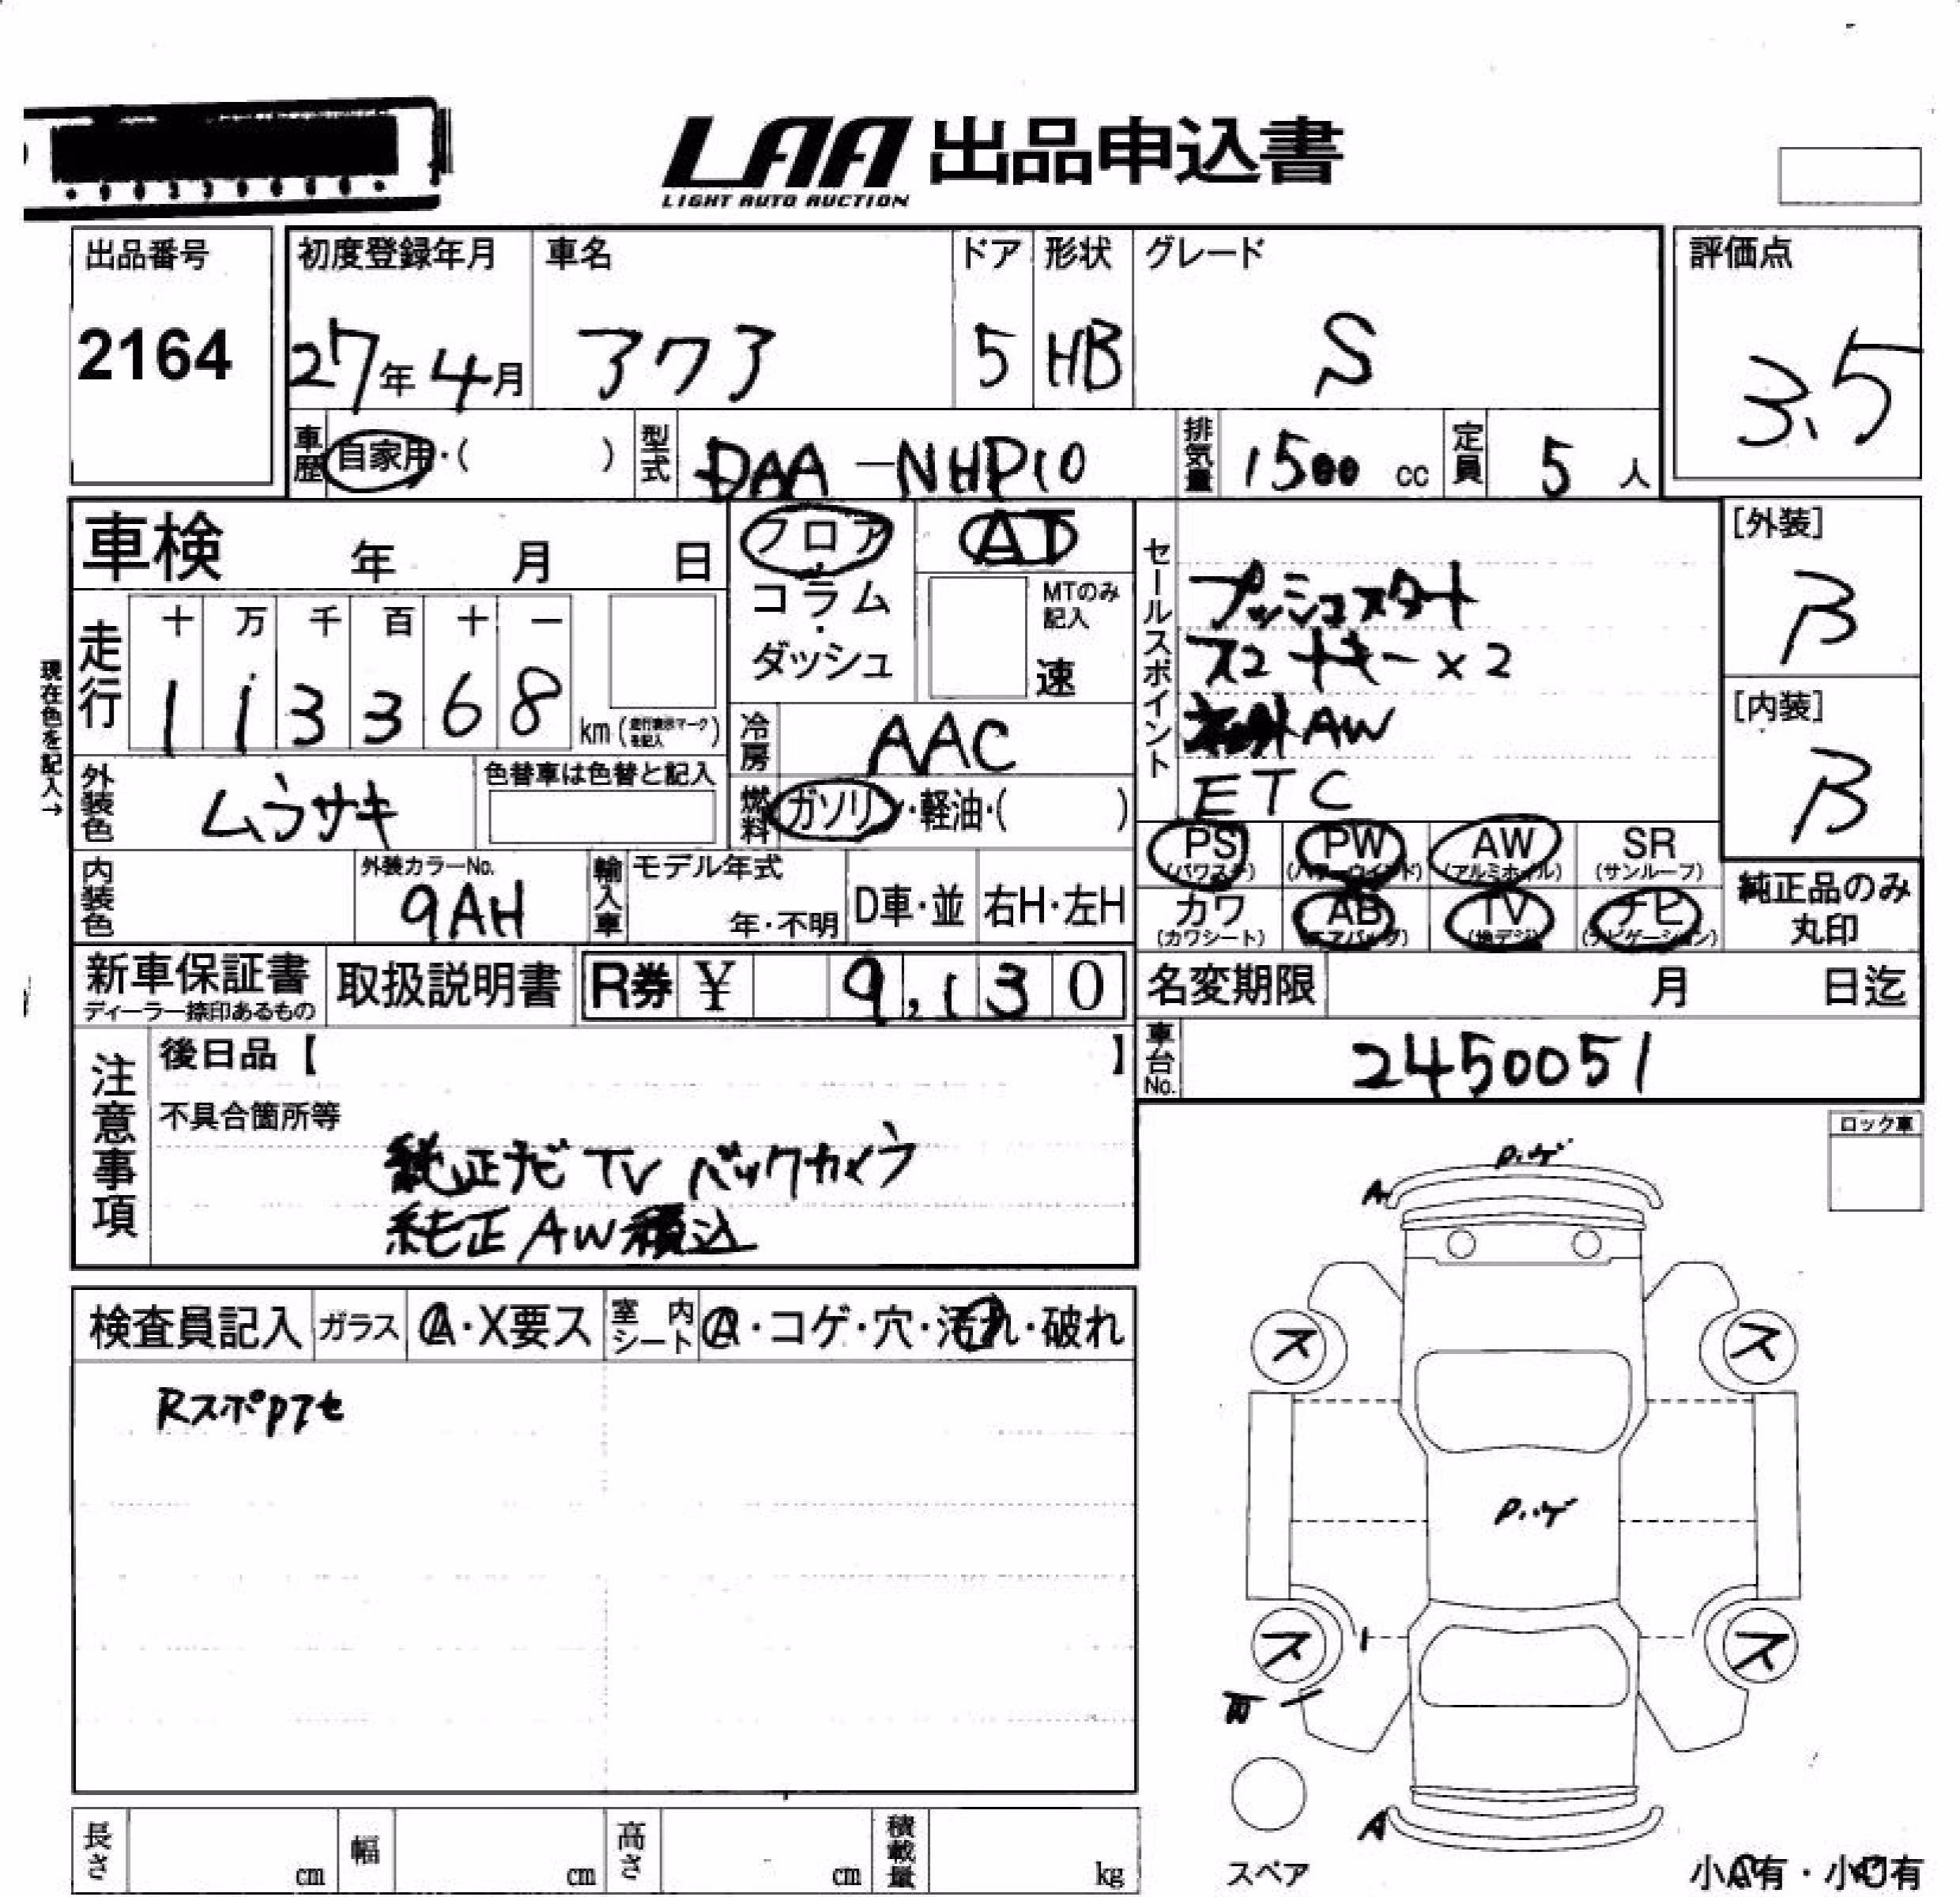 LAA 出品申込書
LIGHT AUTO AUCTION
出品番号
2164
初度登録年月
27年4月
車名
アクア
ドア
5
形状
HB
グレード
S
評価点
3.5
車歴 自家用・( )
型式 DAA-NHP10
排気量 1500 cc
定員 5 人
車検 年 月 日
フロア・コラム・ダッシュ
AT
MTのみ記入
速
走行
十 万 千 百 十 一
1 1 3 3 6 8
km(走行表示マークを記入)
現在色を記入→
冷房 AAC
燃料 ガソリン・軽油・( )
外装色 ムラサキ
色替車は色替と記入
内装色
外装カラーNo.
9AH
輸入車
モデル年式
年・不明
D車・並
右H・左H
セールスポイント
プッシュスタート
スマートキー×2
AW
ETC
[外装]
B
[内装]
B
PS (パワステ)
PW (パワーウインド)
AW (アルミホイル)
SR (サンルーフ)
カワ (カワシート)
AB (エアバッグ)
TV (地デジ)
ナビ (ナビゲーション)
純正品のみ丸印
新車保証書
ディーラー捺印あるもの
取扱説明書
R券 ¥ 9,130
名変期限 月 日迄
車台No. 2450051
注意事項
後日品【 】
不具合箇所等
純正ナビ TV バックカメラ
純正AW積込
ロック車
検査員記入
ガラス A・X要ス
室内シート A・コゲ・穴・汚れ・破れ
RスポPアセ
A
ス ス
ス ス
A
スペア
長さ cm
幅 cm
高さ cm
積載量 kg
小A有・小U有